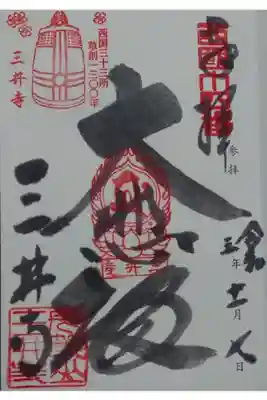 西国十四番
参拝
令三年十一月八日
大悲殿
三井寺
西国三十三所
草創一三〇〇年
三井寺